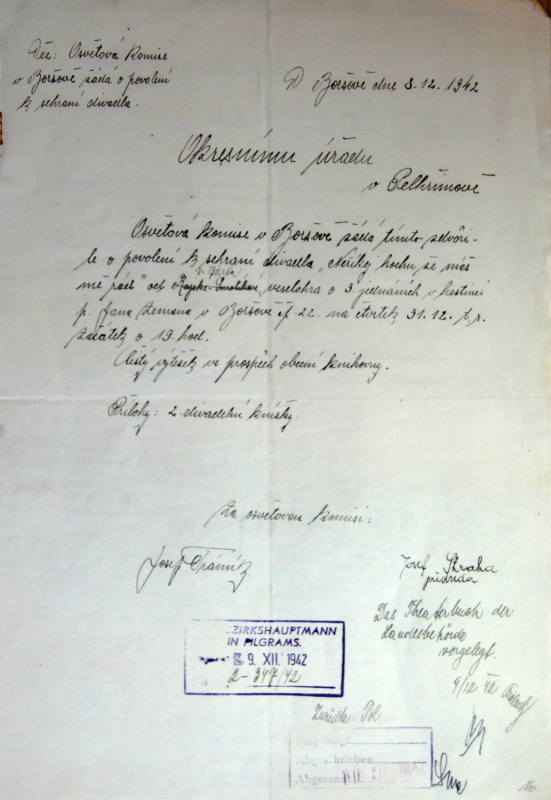 Věc: Osvětová komise
v Boršově žádá o povolení
k sehraní divadla.
V Boršově dne 8.12.1942
Okresnímu úřadu
v Pelhřimově
Osvětová komise v Boršově žádá tímto zdvoři-
le o povolení k sehraní divadla „Neříkej hochu, že máš
mě rád" od
veselohra o 3 jednáních v hostinci
p. Jana Zemana v Boršově čp. 22. na čtvrtek 31.12. t.r.
začátek o 19 hod.
Čistý výtěžek ve prospěch obecní knihovny.
Přílohy: 2 divadelní knížky.
Za osvětovou komisi:
Josef
Josef Straka
Das Theaterbuch der
Landesbehörde
vorgelegt.
9/12 42
ZIRKSHAUPTMANN
IN PILGRAMS.
9. XII. 1942
2-347/42
Zurück Pol.
Abgeschrieben
Abgesandt
16